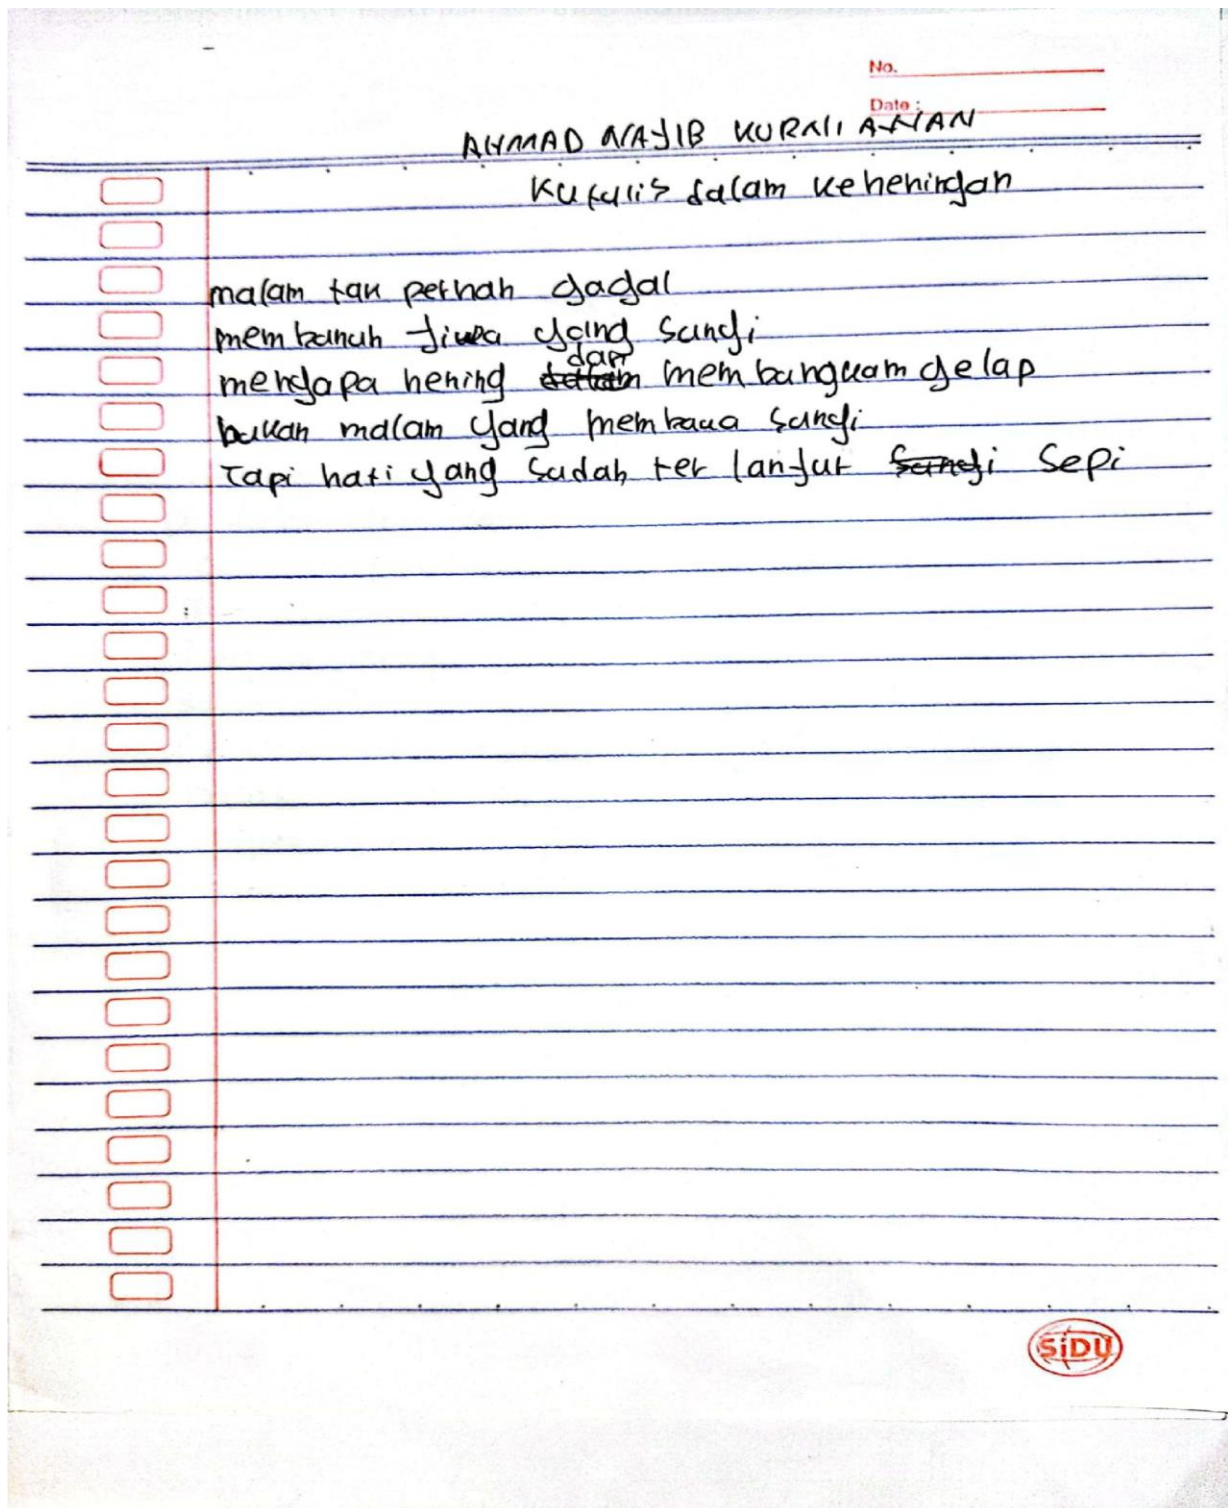 No.
Date :
AHMAD NAJIB KURNIAWAN
Kutulis dalam keheningan
malam tak pernah gagal
membunuh jiwa yang sungi
mengapa hening dap membungkam gelap
bukan malam yang membawa sungi
Tapi hati yang sudah ter lanjut sungi sepi
SiDU